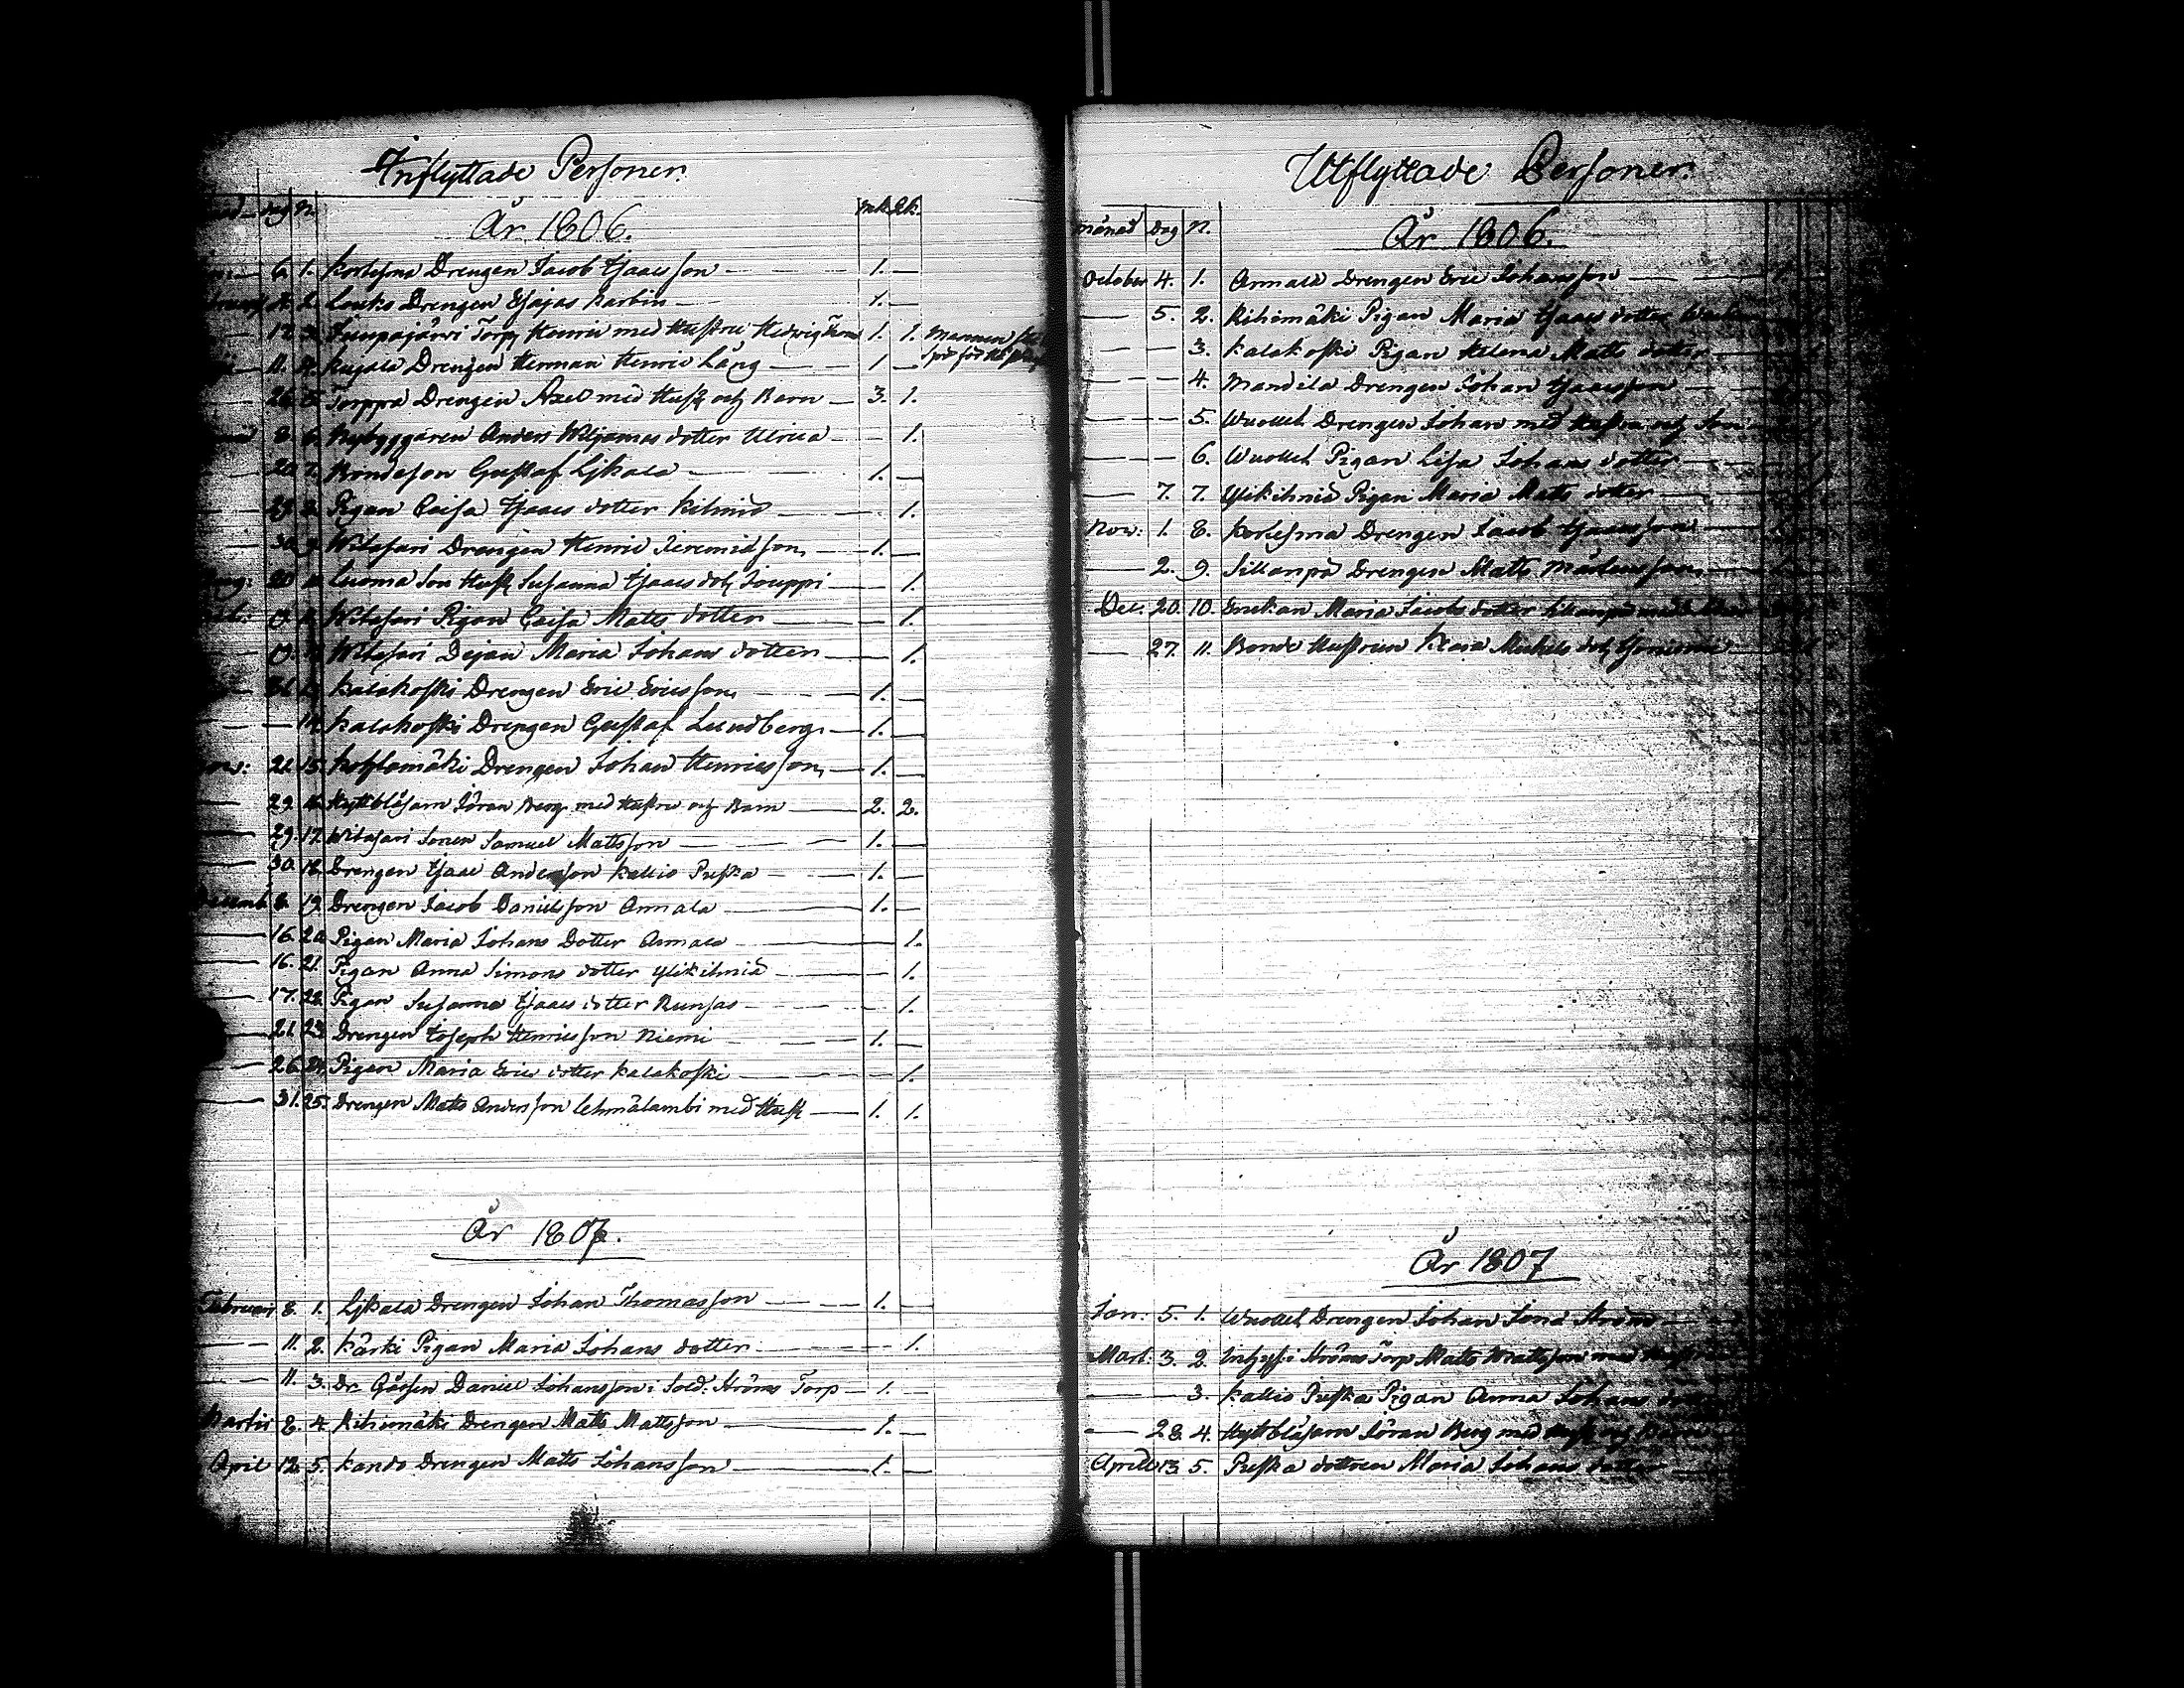 Inflyttade Personer.
År 1806.
6. 1. Korkesma Drengen Jacob Isaacsson 1.
2. Louko Drengen Esajas Karbin 1.
17. 3. Torp. Henric med Hustru Hedvig 1. 1. Mannen
11. 4. Drengen Herman Henric Lång 1
26. 5. Torppa Drengen Axel med Hust. och Barn 3. 1.
8. 6. Nybyggaren Anders Wiljamas dotter Ulrica 1.
20. 7. Bondeson Gustaf Ljskala 1.
29. 8. Pigan Caisa Isaacs dotter Kihniö 1.
30. 9. Witasari Drengen Henric Jeremiæson 1.
20 Luoma Son Hust. Susanna Isaacs dotr Jouppi 1.
19. Witasari Pigan Caisa Matts dotter 1.
19. Witasari Pejan Maria Johans dotter 1.
Kalakoski Drengen Eric Ericsson 1.
14. Kalakoski Drengen Gustaf Lundberg 1.
21. 15. Drengen Johan Henricsson 1.
29. 16. Hyttblåsarn Jöran Berg med Hustru och Barn 2. 2.
29. 17. Witasari Sonen Samuel Mattsson 1.
30. 18. Drengen Isaac Andersson Kallio Puska 1.
Decemb. 8. 19. Drengen Jacob Danielsson Annala 1.
16. 20. Pigan Maria Johans Dotter Annala 1.
16. 21. Pigan Anna Simons dotter Ylikihniä 1.
17. 22. Pigan Susanna Isaacs dotter Runsas 1.
21. 23. Drengen Joseph Henricsson Niemi 1.
26. 24. Pigan Maria Erics dotter Kalakoski 1.
31. 25. Drengen Matts Andersson Lehmälambi med Hust. 1. 1.
År 1807.
Februari 8. 1. Ljskala Drengen Johan Thomasson 1.
11. 2. Kärki Pigan Maria Johans dotter 1.
11. 3. Dr. Daniel Johansson i Sold. Ströms Torp 1.
Martii 8. 4. Kihimäki Drengen Matts Mattsson 1.
April 12. 5. Kando Drengen Matts Johansson 1.
Utflyttade Personer.
månad Dag N.
År 1806.
October 4. 1. Annala Drengen Eric Johansson
5. 2. Kihimäki Pigan Maria Isaacs dotter
3. Kalakoski Pigan Helena Matts dotter
4. Mandila Drengen Johan Isaacsson
5. Wuollet Drengen Johan med Hustru och Son
6. Wuollet Pigan Lisa Johans dotter
7. 7. Ylikihniä Pigan Maria Matts dotter
Nov: 1. 8. Korkesma Drengen Jacob Isaacsson
2. 9. Sillanpä Drengen Matts Mårtensson
Dec. 20. 10. Enckan Maria Jacobs dotter
27. 11. Bonde Hustrun Maria Michels dotr
År 1807
Jan: 5. 1. Wuollet Drengen Johan Ström
Mart: 3. 2. Inhys: i Ströms Torp Matts Mattsson med
3. Kallio Puska Pigan Anna Johans
28. 4. Hyttblåsarn Jöran Berg med Hust. och Barn
April 13. 5. Puska dottren Maria Johans dotter